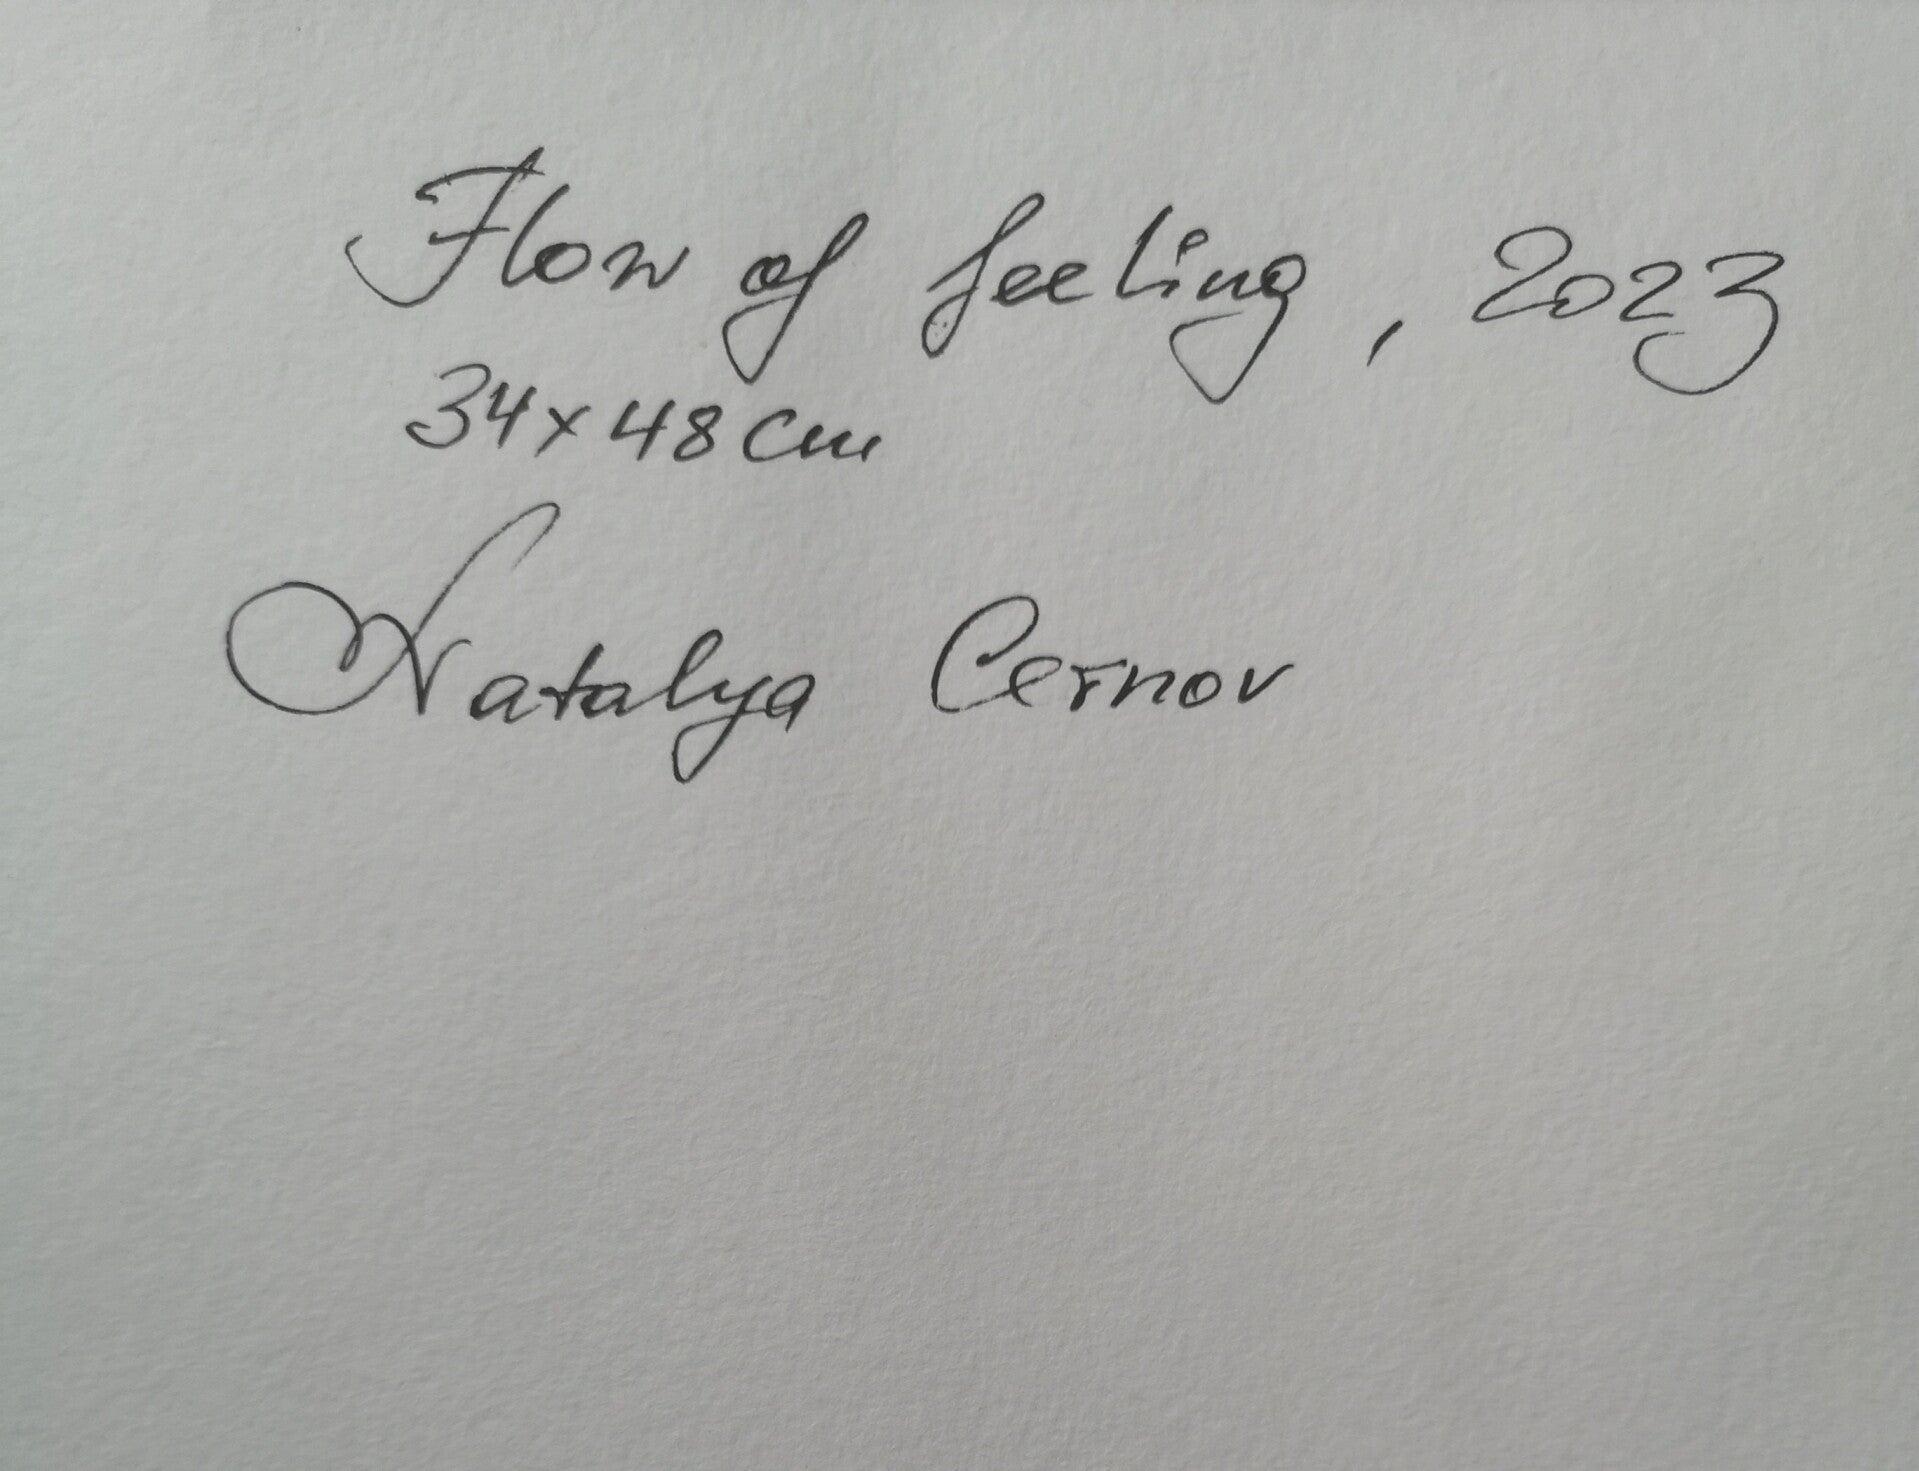 Flow of feeling, 2023
34x48 cm
Natalya Cernov